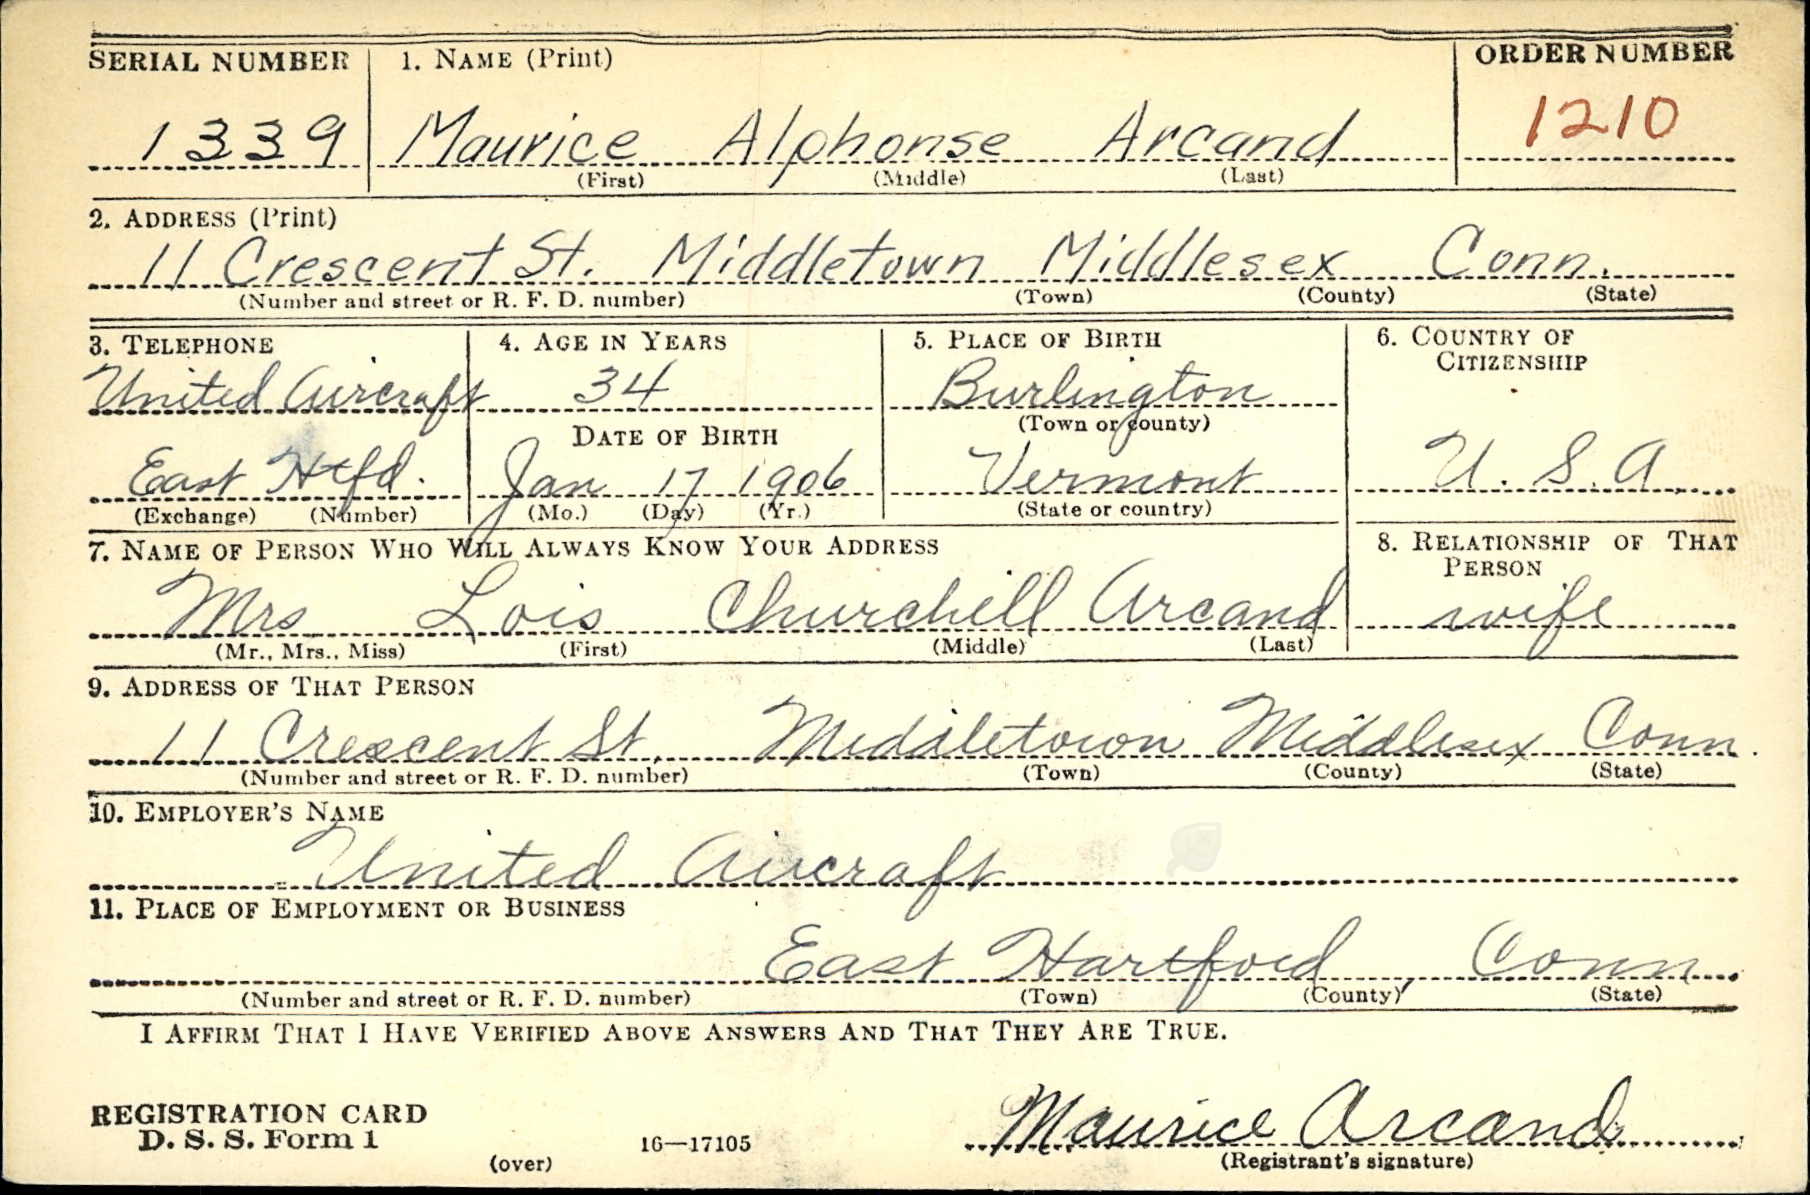 SERIAL NUMBER 1. NAME (Print) ORDER NUMBER
1339 Maurice Alphonse Arcand 1210
(First) (Middle) (Last)
2. ADDRESS (Print)
11 Crescent St. Middletown Middlesex Conn.
(Number and street or R. F. D. number) (Town) (County) (State)
3. TELEPHONE 4. AGE IN YEARS 5. PLACE OF BIRTH 6. COUNTRY OF
CITIZENSHIP
United Aircraft 34 Burlington
DATE OF BIRTH (Town or county)
East Htfd. Jan 17 1906 Vermont U. S. A.
(Exchange) (Number) (Mo.) (Day) (Yr.) (State or country)
7. NAME OF PERSON WHO WILL ALWAYS KNOW YOUR ADDRESS 8. RELATIONSHIP OF THAT
PERSON
Mrs Lois Churchill Arcand wife
(Mr., Mrs., Miss) (First) (Middle) (Last)
9. ADDRESS OF THAT PERSON
11 Crescent St. Middletown Middlesex Conn.
(Number and street or R. F. D. number) (Town) (County) (State)
10. EMPLOYER'S NAME
United Aircraft
11. PLACE OF EMPLOYMENT OR BUSINESS
East Hartford, Conn.
(Number and street or R. F. D. number) (Town) (County) (State)
I AFFIRM THAT I HAVE VERIFIED ABOVE ANSWERS AND THAT THEY ARE TRUE.
REGISTRATION CARD
D. S. S. Form 1 16—17105 Maurice Arcand
(over) (Registrant's signature)